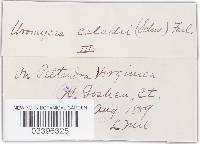 Uromyces caladii (Schw.) Farl.
III
On Peltandra Virginica
W. Goshen Ct.
Aug 1889
NEW YORK BOTANICAL GARDEN
03396325